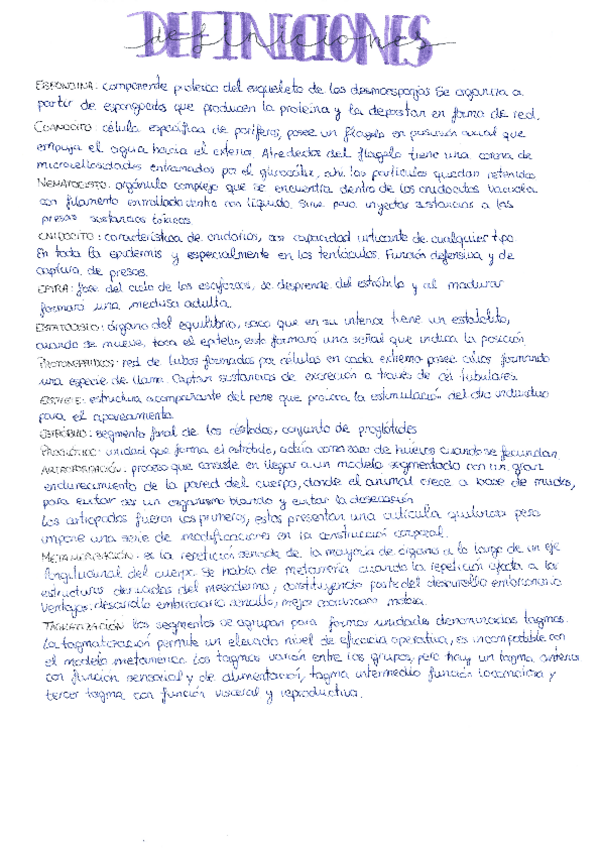 DEFINICIONES
definiciones
ESPONGINA: componente proteico del esqueleto de las desmosponjas. Se organiza a
partir de espongocitos que producen la proteína y la depositan en forma de red.
COANOCITO: célula específica de poríferos, posee un flagelo en posición axial que
empuja el agua hacia el exterior. Alrededor del flagelo tiene una corona de
microvellosidades entramadas por el glicocálix, ahí las partículas quedan retenidas
NEMATOCISTO: orgánulo complejo que se encuentra dentro de los cnidocitos. Vacuola
con filamento enrollado dentro con líquido. Sirve para inyectar sustancias a las
presas sustancias tóxicas.
CNIDOCITO: característica de cnidarios, con capacidad urticante de cualquier tipo.
En toda la epidermis y especialmente en los tentáculos. Función defensiva y de
captura de presas.
EFIRA: fase del ciclo de los escifozoos, se desprende del estróbilo y al madurar
formará una medusa adulta.
ESTATOCISTO: órgano del equilibrio, saco que en su interior tiene un estatolito,
cuando se mueve, toca el epitelio, esto formará una señal que indica la posición.
PROTONEFRIDIOS: red de tubos formados por células en cada extremo posee cilios formando
una especie de llama. Captan sustancias de excreción a través de cél. tubulares.
estructura acompañante del pene que provoca la estimulación del otro individuo
para el apareamiento.
ESTRÓBILO: segmento final de los céstodos, conjunto de proglótides
PROGLÓTIDE: unidad que forma el estróbilo, actúa como saco de huevos cuando se fecundan.
ARTROPODIZACIÓN: proceso que consiste en llegar a un modelo segmentado con un gran
endurecimiento de la pared del cuerpo, donde el animal crece a base de mudas,
para evitar ser un organismo blando y evitar la desecación
Los artrópodos fueron los primeros, estos presentan una cutícula quitinosa pero
impone una serie de modificaciones en la construcción corporal.
METAMERIZACIÓN: es la repetición seriada de la mayoría de órganos a lo largo de un eje
longitudinal del cuerpo. Se habla de metamería cuando la repetición afecta a las
estructuras derivadas del mesodermo, constituyendo parte del desarrollo embrionario
Ventajas: desarrollo embrionario sencillo, mejor motora.
TAGMATIZACIÓN: los segmentos se agrupan para formar unidades denominadas tagmas.
La tagmatización permite un elevado nivel de eficacia operativa, es incompatible con
el modelo metamérico. Los tagmas varían entre los grupos, pero hay un tagma anterior
con función sensorial y de alimentación, tagma intermedio función locomotora y
tercer tagma con función visceral y reproductiva.